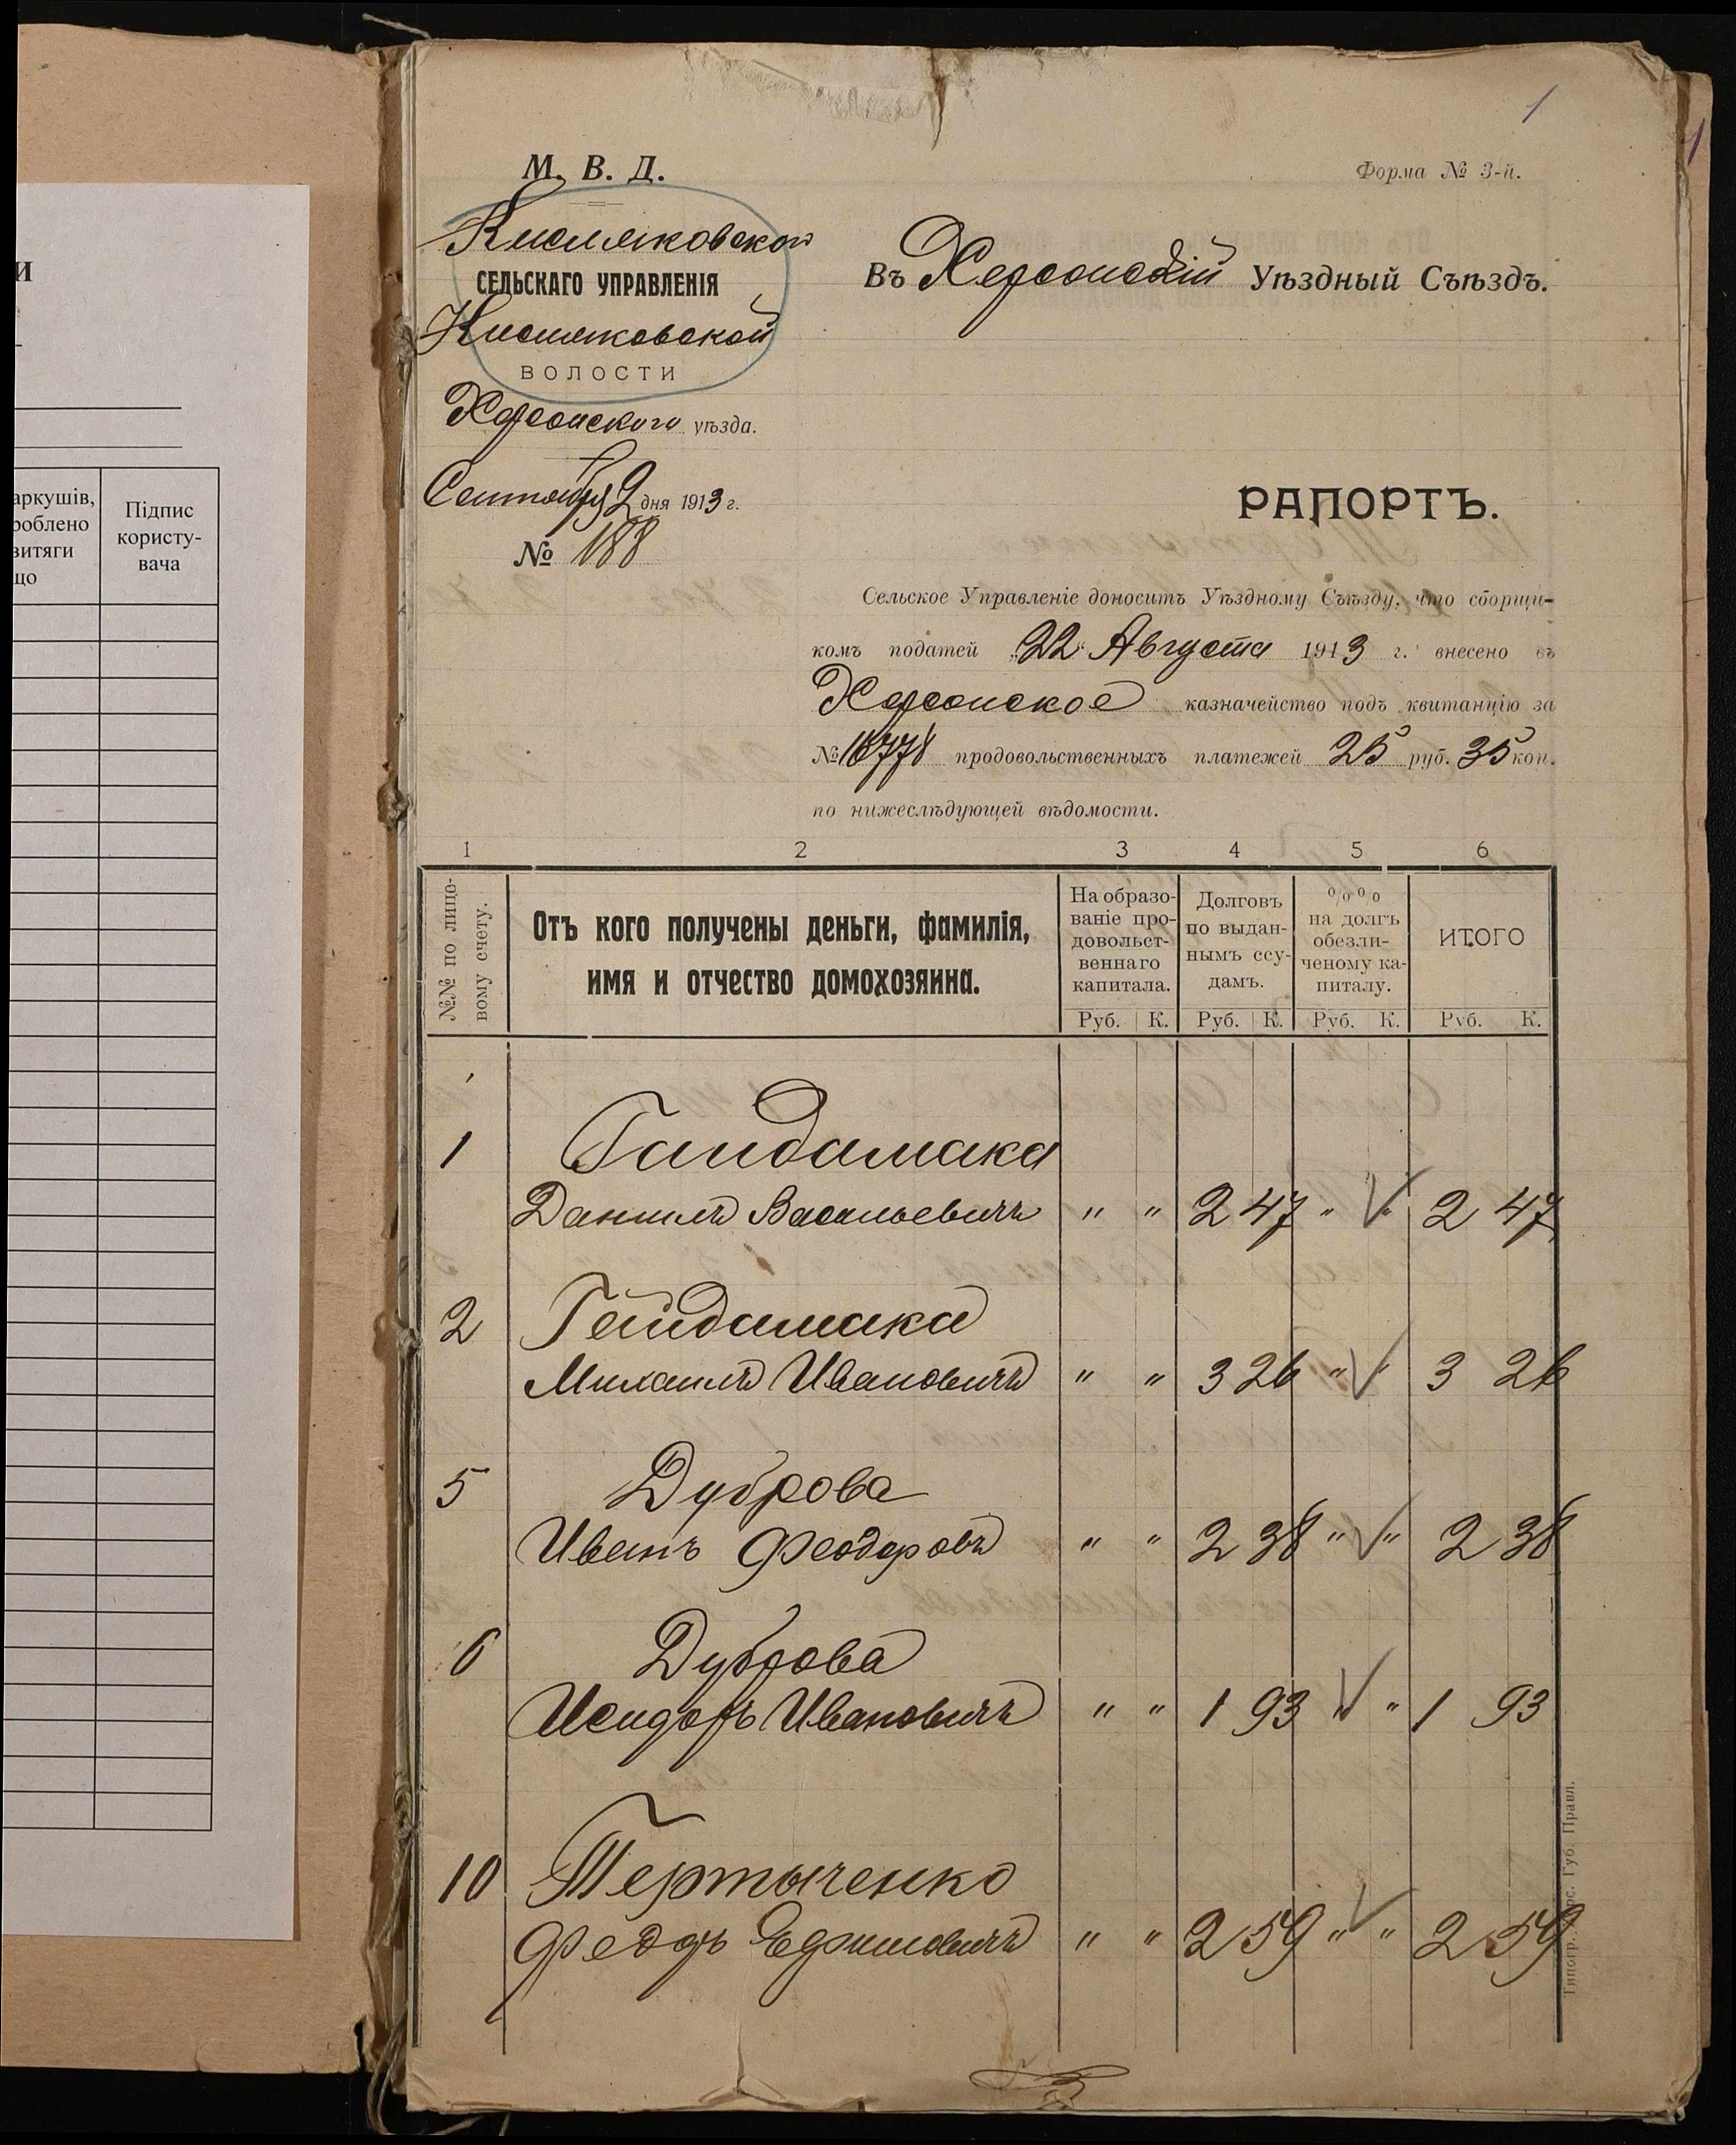 и
аркушів,
роблено
витяги
що
Підпис
користу-
вача
1
1
М. В. Д.
Форма № 3-й.
Кисляковского
СЕЛЬСКАГО УПРАВЛЕНІЯ
Кисляковской
ВОЛОСТИ
Херсонского уѣзда.
Сентября 2 дня 1913 г.
№ 188
Въ Херсонскій Уѣздный Съѣздъ.
РАПОРТЪ.
Сельское Управленіе доноситъ Уѣздному Съѣзду, что сборщи-
комъ податей „22“ Августа 1913 г. внесено въ
Херсонское казначейство подъ квитанцію за
№ 16778 продовольственныхъ платежей 25 руб. 35 коп.
по нижеслѣдующей вѣдомости.
1 2 3 4 5 6
№№ по лицо-
вому счету.
Отъ кого получены деньги, фамилія,
имя и отчество домохозяина.
На образо-
ваніе про-
довольст-
веннаго
капитала.
Долговъ
по выдан-
нымъ ссу-
дамъ.
%%
на долгъ
обезли-
ченому ка-
питалу.
ИТОГО
Руб. К. Руб. К. Руб. К. Руб. К.
1 Гайдамака
Данилъ Васильевичъ " " 2 47 " " 2 47
2 Гайдамака
Михаилъ Ивановичъ " " 3 26 " " 3 26
5 Дуброва
Иванъ Феодоровъ " " 2 38 " " 2 38
6 Дуброва
Исидоръ Ивановичъ " " 1 93 " " 1 93
10 Тертыченко
Федоръ Ефимовичъ " " 2 59 " " 2 59
Типогр. Хос. Губ. Правл.